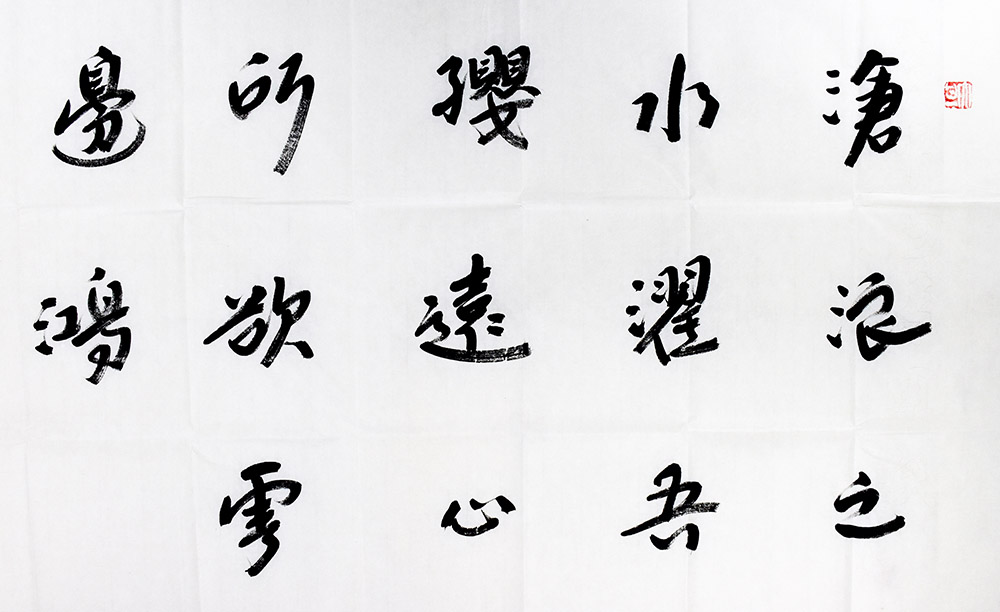 滄浪之
水濯吾
纓遠心
所欲雲
邊鴻